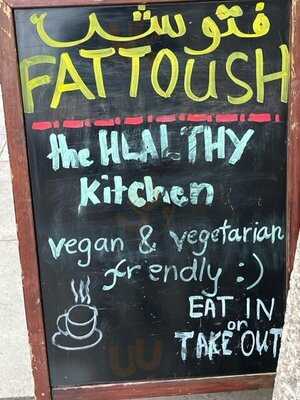 فتوش
FATTOUSH
the HEALTHY
kitchen
vegan & vegetarian
friendly :)
EAT IN
or
TAKE OUT